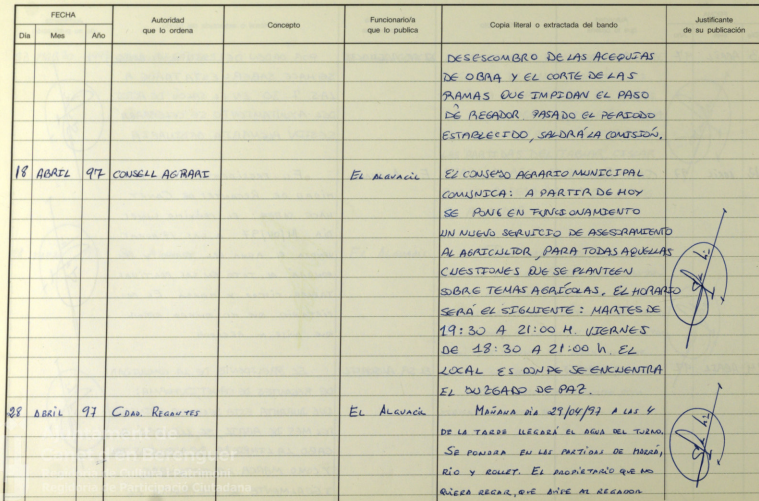 FECHA
Día Mes Año
Autoridad
que lo ordena
Concepto
Funcionario/a
que lo publica
Copia literal o extractada del bando
Justificante
de su publicación
DESESCOMBRO DE LAS ACEQUIAS
DE OBRA Y EL CORTE DE LAS
RAMAS QUE IMPIDAN EL PASO
DE REGADOR. PASADO EL PERIODO
ESTABLECIDO, SALDRÁ LA COMISIÓN.
18 ABRIL 97 CONSELL AGRARI EL ALGUACIL EL CONSEJO AGRARIO MUNICIPAL
COMUNICA: A PARTIR DE HOY
SE PONE EN FUNCIONAMIENTO
UN NUEVO SERVICIO DE ASESORAMIENTO
AL AGRICULTOR, PARA TODAS AQUELLAS
CUESTIONES QUE SE PLANTEEN
SOBRE TEMAS AGRÍCOLAS. EL HORARIO
SERÁ EL SIGUIENTE: MARTES DE
19:30 A 21:00 H. VIERNES
DE 18:30 A 21:00 h. EL
LOCAL ES DONDE SE ENCUENTRA
EL JUZGADO DE PAZ.
28 ABRIL 97 CDAD. REGANTES EL ALGUACIL MAÑANA DIA 29/04/97 A LAS 4
DE LA TARDE LLEGARÁ EL AGUA DEL TURNO.
SE PONDRA EN LAS PARTIDAS DE MARRÁ,
RIO Y ROLLET. EL PROPIETARIO QUE NO
QUIERA REGAR, QUE AVISE AL REGADOR
Ajuntament de
Cultura i Patrimoni
de Participació Ciutadana